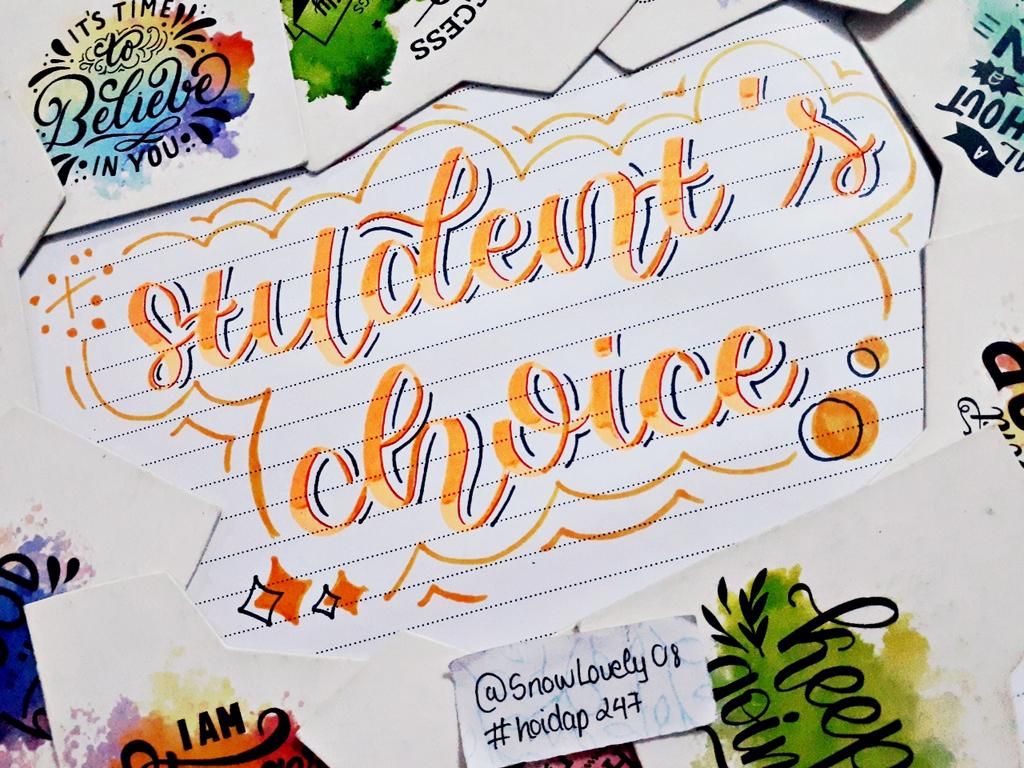 IT'S TIME
to
Believe
IN YOU
student's
choice
@SnowLovely08
#hoidap247
I AM
keep